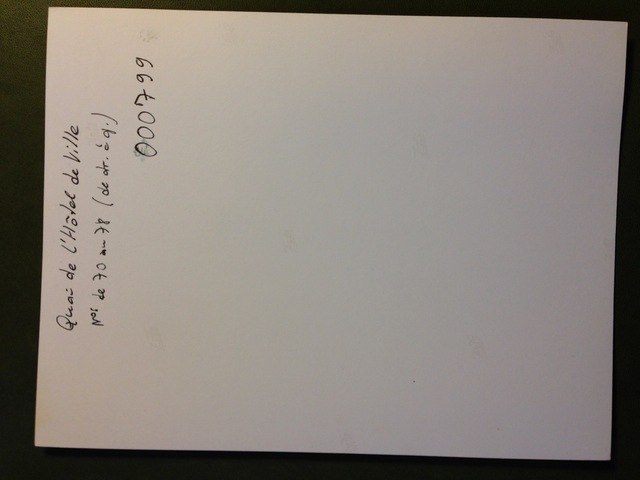 Quai de l'Hôtel de Ville
Nos de 70 au 78 (de dr. à g.)
000799